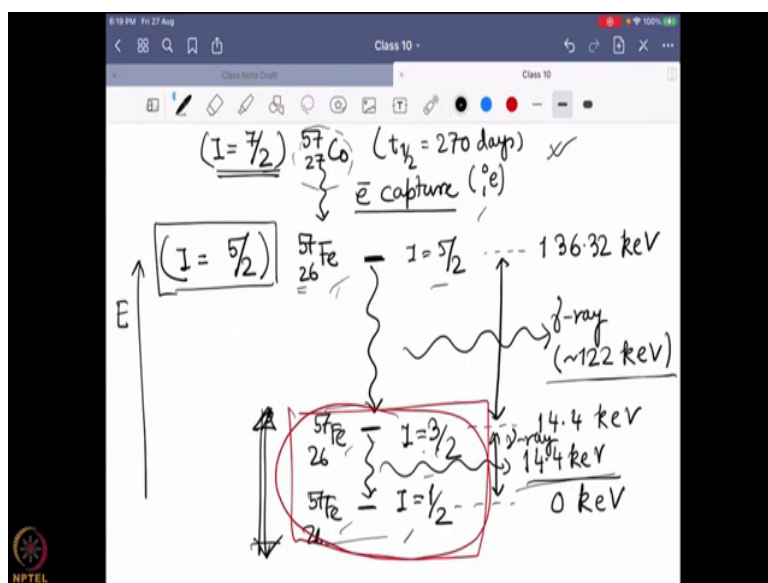 6:19 PM Fri 27 Aug
100%
Class 10
Class Note Draft
Class 10
(I = 7/2) 57 27 Co (t1/2 = 270 days)
ē capture (0 1 e)
(I = 5/2) 57 26 Fe I = 5/2 136.32 keV
E
γ-ray
(~122 keV)
57 26 Fe I = 3/2 14.4 keV
γ-ray
14.4 keV
57 26 Fe I = 1/2 0 keV
NPTEL